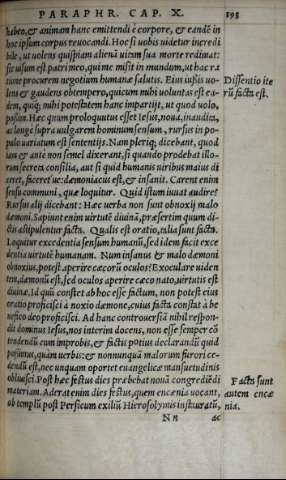 PARAPHR. CAP. X.
595
habeo, & animam hanc emittendi è corpore, & eandē in
hoc ipsum corpus reuocandi. Hoc si uobis uidetur incredi
bile, ut uolens quispiam alienā uitam sua morte redimat:
sic uisum est patri meo, qui me misit in mundum, ut hac ra
tione procurem negotium humanæ salutis. Eius iussis uo-
lens & gaudens obtempero, quicum mihi uoluntas est ea-
dem, quiq; mihi potestatem hanc impartijt, ut quod uolo,
possim. Hæc quum proloquutus esset Iesus, noua, inaudita,
ac longe supra uulgarem hominum sensum, rursus in po-
pulo uariatum est sententijs. Nam pleriq; dicebant, quod
iam & ante non semel dixerant, si quando prodebat illo-
rum secreta consilia, aut si quid humanis uiribus maius di
ceret, faceret ue: dæmoniacus est, & insanit. Carent enim
sensu communi, quæ loquitur. Quid istum iuuat audire?
Rursus alij dicebant: Hæc uerba non sunt obnoxij malo
dæmoni. Sapiunt enim uirtutē diuinā, præsertim quum di-
ctis astipulentur facta. Qualis est oratio, talia sunt facta.
Loquitur excedentia sensum humanū, sed idem facit exce
dentia uirtutē humanam. Num insanus & malo dæmoni
obnoxius, potest aperire cæcorū oculos? Exoculare uiden
tem, dæmonū est, sed oculos aperire cæco nato, uirtutis est
diuinæ. Id quū constet ab hoc esse factum, non potest eius
oratio proficisci à noxio dæmone, cuius facta constat à be
nefico deo proficisci. Ad hanc controuersiā nihil respon-
dit dominus Iesus, nos interim docens, non esse semper cō
tendendū cum improbis, & factis potius declarandū quid
possimus, quàm uerbis: & nonnunquā malorum furori ce-
dendū est, nec unquam oportet euangelicæ mansuetudinis
obliuisci. Post hæc festus dies præbebat nouā congrediēdi
materiam. Aderat enim dies festus, quem encænia uocant,
ob templū post Persicum exiliū Hierosolymis instauratū,
N n
ac
Dissentio ite
rū facta est.
Facta sunt
autem encæ
nia.